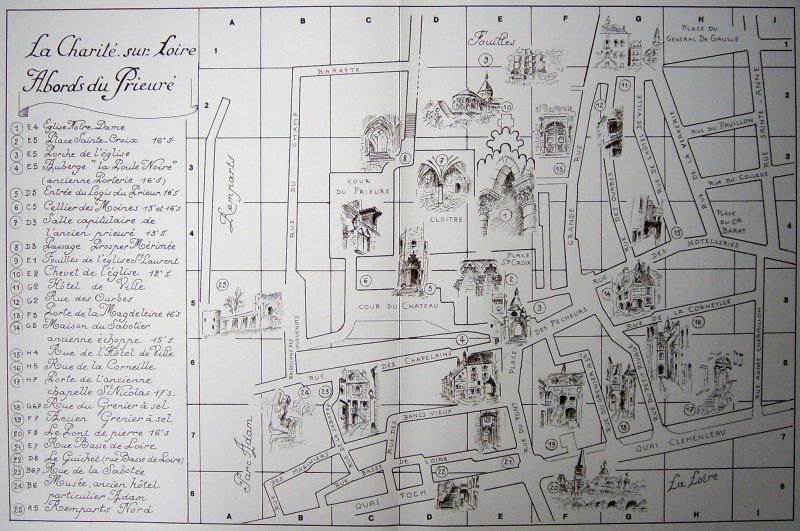 La Charité-sur-Loire
Abords du Prieuré
1 E4 Eglise Notre-Dame
2 E5 Place Sainte-Croix 16's
3 E5 Porche de l'église
4 E5 Auberge "la Poule Noire"
(ancienne Porterie 16's)
5 D5 Entrée du Logis du Prieur 16's
6 C5 Cellier des Moines 13' et 16's
7 D3 Salle capitulaire de
l'ancien prieuré 13's.
8 D3 Passage Prosper Mérimée
9 E1 Fouilles de l'église St Laurent
10 E2 Chevet de l'église 12's.
11 G2 Hôtel de Ville
12 G2 Rue des Ourbes
13 F3 Porte de la Magdeleine 16's
14 G5 Maison du Sabotier
ancienne échoppe 15's.
15 H4 Rue de l'Hôtel de Ville
16 H5 Rue de la Corneille
17 H7 Porte de l'ancienne
chapelle St Nicolas 17's.
18 G6.7 Rue du Grenier à sel
19 F7 Ancien Grenier à sel
20 F8 Le Pont de pierre 16's
21 E7 Rue Basse de Loire
22 D8 Le Guichet (rue Basse de Loire)
23 B6.7 Rue de la Sabotée
24 B6 Musée, ancien hôtel
particulier Adam
25 A5 Remparts Nord
A B C D E F G H I
1 2 3 4 5 6 7 8
Fouilles
PLACE DU
GENERAL DE GAULLE
BARATTE
RUE DU CHAMP
Remparts
COUR
DU PRIEURE
CLOITRE
PLACE
STE CROIX
COUR DU CHATEAU
GRANDE RUE
RUE DES OURBES
RUE DE L'HOTEL DE VILLE
RUE DE LA VERRERIE
RUE DU PAVILLON
RUE SAINTE-ANNE
RUE DU COLLEGE
PLACE
DU CAL
BARAT
RUE DES HOTELLERIES
RUE DE LA CORNEILLE
RUE ANDRE CHAMAILLON
PLACE DES PECHEURS
RUE DES CHAPELAINS
RUE DU GRENIER A SEL
RUE DU PETIT RIVAGE
RUE DES BANCS VIEUX
RUE DU PONT
RUE DES MARINIERS
RUE BASSE DE LOIRE
QUAI FOCH
QUAI CLEMENCEAU
Parc Adam
La Loire
A B C D E F G H I